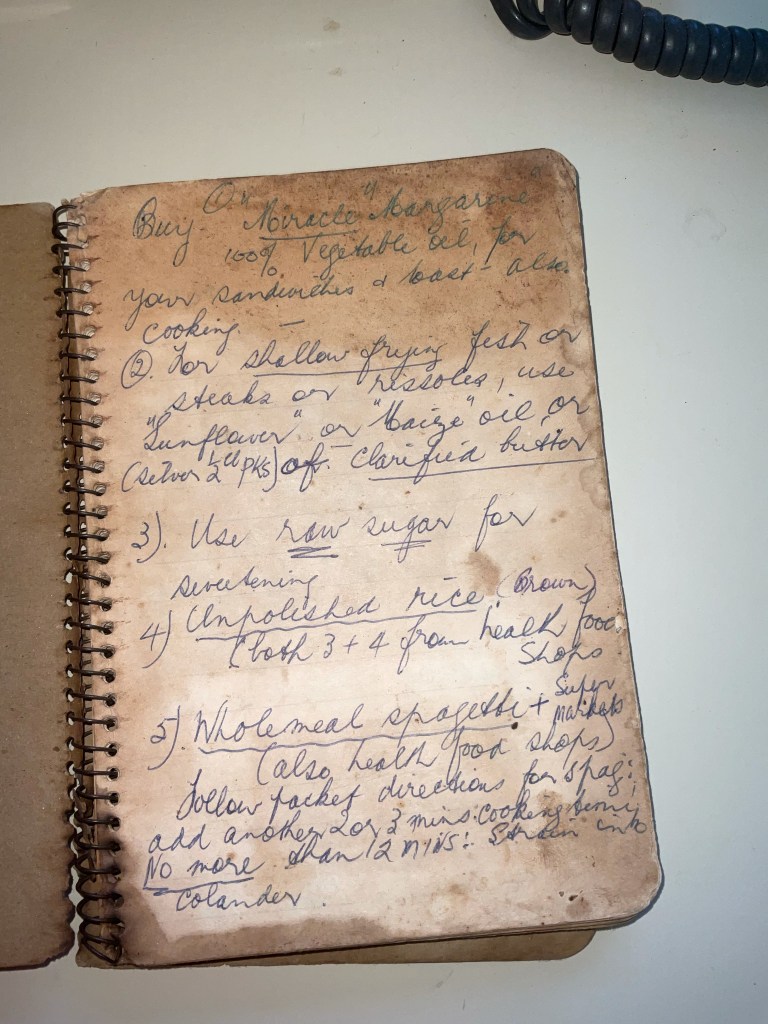 Buy ① "Miracle" Margarine"
100% Vegetable oil, for
your sandwiches & toast - also
cooking. —
②. For shallow frying fish or
steaks or rissoles, use
"Sunflower" or "Maize" oil, or
(silver ½ lb pks) of clarified butter
3). Use raw sugar for
sweetening
4) Unpolished rice (Brown)
(both 3 + 4 from health food
Shops
5). Wholemeal spagetti + Super
Markets
(also health food shops)
Follow packet directions for spag:
add another 2 or 3 mins. cooking time;
No more than 12 mins: Strain into
colander.